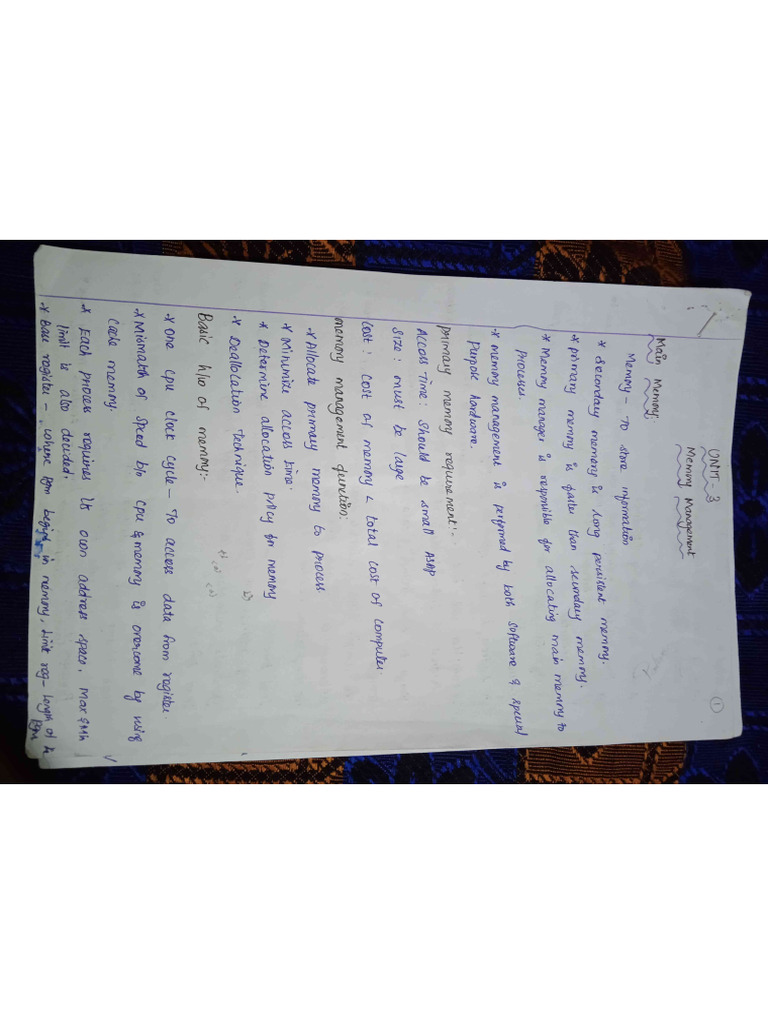 ①
UNIT-3
Memory Management
Main Memory:
Memory - To store information
* Secondary memory is long persistent memory.
* primary memory is faster than secondary memory.
* Memory manager is responsible for allocating main memory to
processes.
* memory management is performed by both software & special
Purpose hardware.
primary memory requirement:-
Access Time: Should be small ASAP
Size: must be large
Cost: cost of memory < total cost of computer
memory management function:
* Allocate primary memory to process
* Minimize access time.
* Determine allocation policy for memory
* Deallocation Technique.
Basic h/w of memory:-
* One cpu clock cycle - To access data from register
* Mismatch of speed b/n cpu & memory is overcome by using
cache memory
* Each process requires its own address space. Max & Min
limit is also decided.
* Base register - where pgm begins in memory, limit reg - length of
pgm